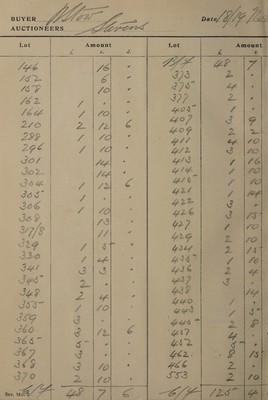 BUYER
AUCTIONEERS Stevens
Date 18/19
Lot Amount Lot Amount
£ s. d. £ s.
146 16 "
152 6 "
158 10 "
162 1 " "
164 1 10 "
210 2 12 6
288 1 10 "
296 1 10 "
301 14 "
302 14 "
304 1 12 6
305 1 " "
306 1 10 "
308 13 "
317/8 11 "
329 1 5 "
330 1 4 "
341 3 3 "
345 2 " "
348 2 4 "
355 1 10 "
359 3
360 3 12 6
365 5 5 "
367 3
368 3 10 "
370 2 10 "
48 7 6
48 7
373 2
375 4
377 2
405 1
407 3 9
409 2 2
411 4 10
412 3 10
413 1 16
414 1 10
415 1 10
421 14
422 3
426 3 15
427 1 10
429 2 10
434 2 15
435 1 10
436 2 4
437 3
438 14
440 1
443 1 5
445 2 8
457 4
452 5
462 8 15
466 2
553 2 10
125 4